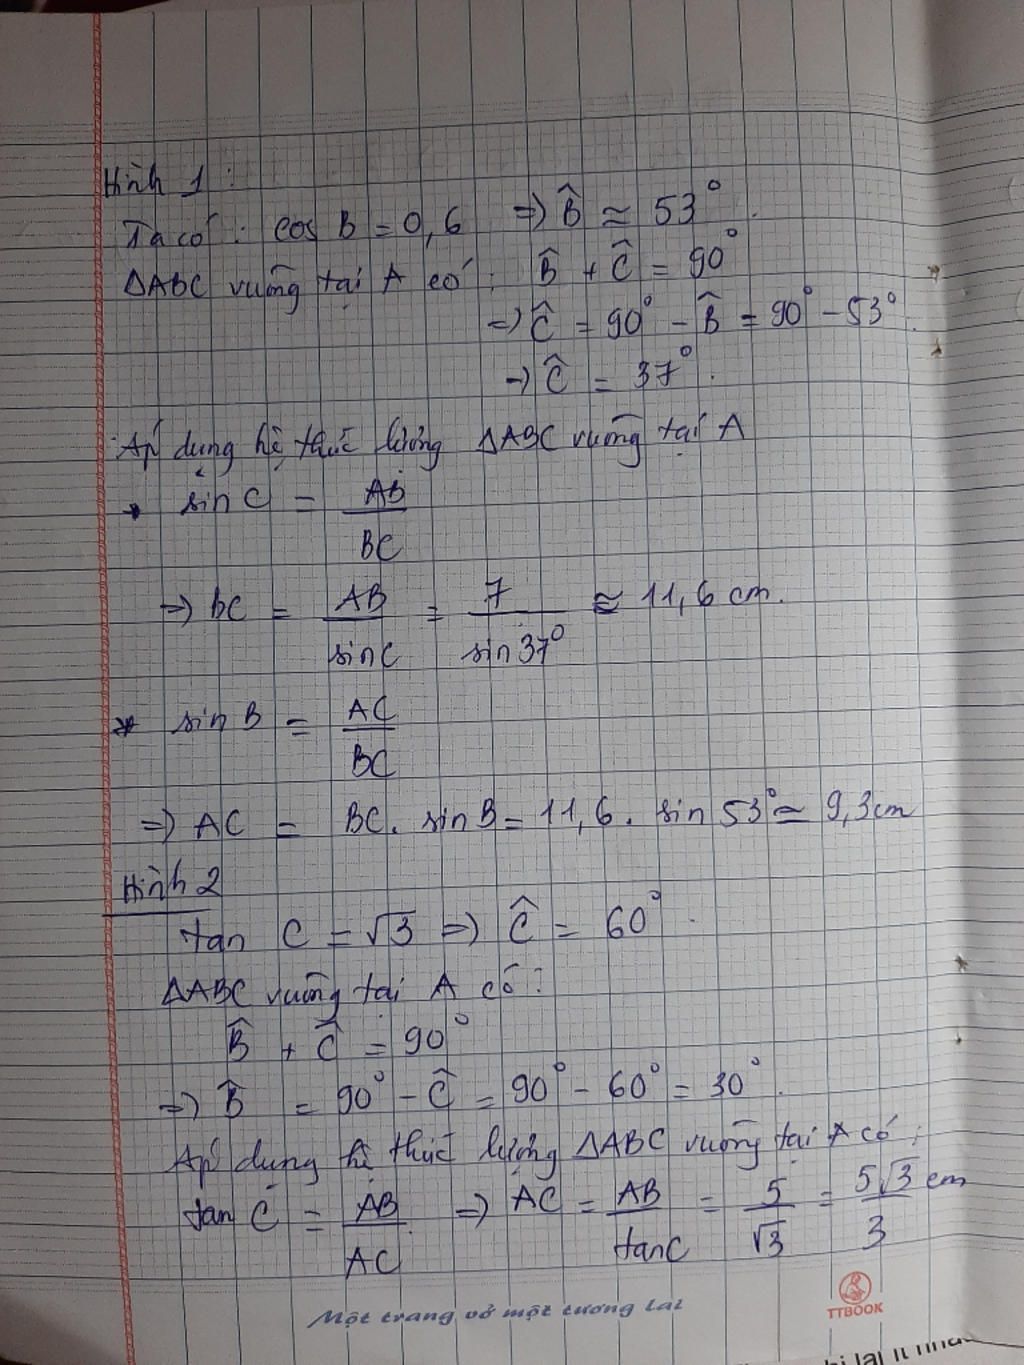 Hình 1 :
Ta có : cos B = 0,6 => B̂ ≈ 53°.
ΔABC vuông tại A có : B̂ + Ĉ = 90°
=> Ĉ = 90° - B̂ = 90° - 53°.
=> Ĉ = 37°.
Áp dụng hệ thức lượng ΔABC vuông tại A
* sin C = AB/BC
=> BC = AB/sinC = 7/sin37° ≈ 11,6 cm.
* sin B = AC/BC
=> AC = BC. sin B = 11,6. sin 53° ≈ 9,3cm
Hình 2
tan C = √3 => Ĉ = 60°.
ΔABC vuông tại A có :
B̂ + Ĉ = 90°
=> B̂ = 90° - Ĉ = 90° - 60° = 30°.
Áp dụng hệ thức lượng ΔABC vuông tại A có :
tan C = AB/AC => AC = AB/tanC = 5/√3 = 5√3/3 cm
Một trang vở một tương lai
TTBOOK